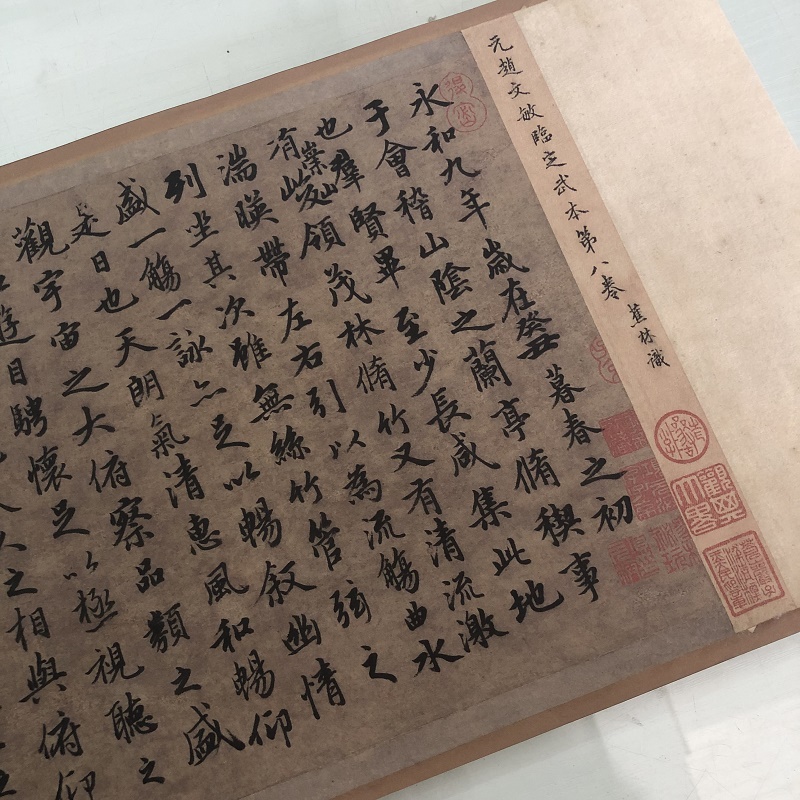 元趙文敏臨定武本第八卷 蕉林識
永和九年歲在癸丑暮春之初
于會稽山陰之蘭亭脩稧事
也羣賢畢至少長咸集此地
有崇山峻領茂林脩竹又有清流激
湍暎帶左右引以為流觴曲水
列坐其次雖無絲竹管弦之
盛一觴一詠亦足以暢叙幽情
是日也天朗氣清惠風和暢仰
觀宇宙之大俯察品類之盛
遊目騁懷足以極視聽之
人之相與俯仰